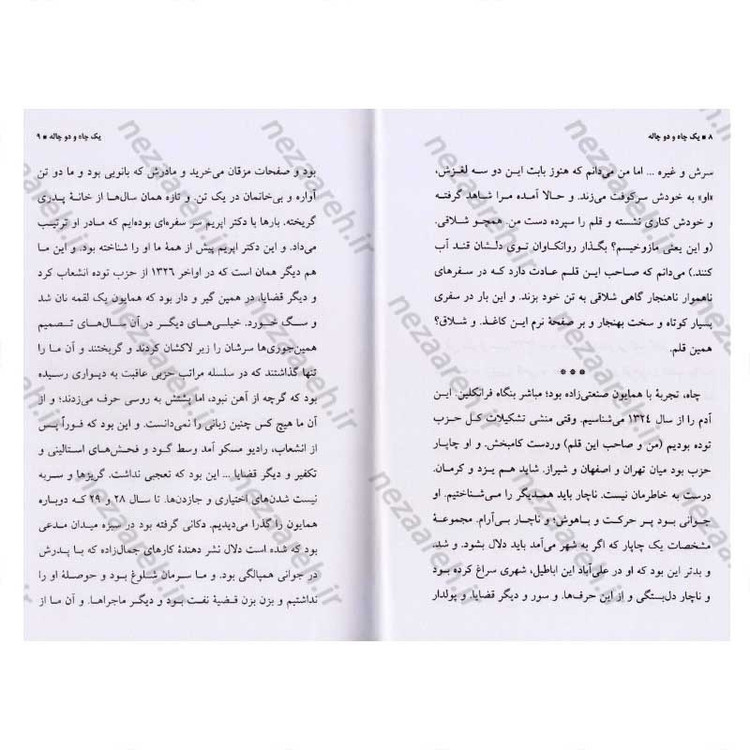 ۸ ■ یک چاه و دو چاله
سرش و غیره ... اما من می‌دانم که هنوز بابت این دو سه لغزش،
«او» به خودش سرکوفت می‌زند. و حالا آمده مرا شاهد گرفته
و خودش کناری نشسته و قلم را سپرده دست من. همچو شلاقی.
(و این یعنی مازوخیسم؟ بگذار روانکاوان توی دلشان قند آب
کنند.) می‌دانم که صاحب این قلم عادت دارد که در سفرهای
ناهموار ناهنجار گاهی شلاقی به تن خود بزند. و این بار در سفری
بسیار کوتاه و سخت بهنجار و بر صفحهٔ نرم این کاغذ. و شلاق؟
همین قلم.
***
چاه، تجربهٔ با همایون صنعتی‌زاده بود؛ مباشر بنگاه فرانکلین. این
آدم را از سال ۱۳۲٤ می‌شناسیم. وقتی منشی تشکیلات کل حزب
توده بودیم (من و صاحب این قلم) وردست کامبخش. و او چاپار
حزب بود میان تهران و اصفهان و شیراز. شاید هم یزد و کرمان.
درست به خاطرمان نیست. ناچار باید همدیگر را می‌شناختیم. او
جوانی بود پر حرکت و باهوش؛ و ناچار بی‌آرام. مجموعهٔ
مشخصات یک چاپار که اگر به شهر می‌آمد باید دلال بشود. و شد.
و بدتر این بود که او در علی‌آباد این اباطیل، شهری سراغ کرده بود
و ناچار دل‌بستگی و از این حرف‌ها. و سور و دیگر قضایا. و پولدار
یک چاه و دو چاله ■ ۹
بود و صفحات مزقان می‌خرید و مادرش که بانویی بود و ما دو تن
آواره و بی‌خانمان در یک تن. و تازه همان سال‌ها از خانهٔ پدری
گریخته. بارها با دکتر اپریم سر سفره‌ای بوده‌ایم که مادر او ترتیب
می‌داد. و این دکتر اپریم پیش از همهٔ ما او را شناخته بود. و این ما
هم دیگر همان است که در اواخر ۱۳۲٦ از حزب توده انشعاب کرد
و دیگر قضایا. در همین گیر و دار بود که همایون یک لقمه نان شد
و سگ خورد. خیلی‌های دیگر در آن سال‌های تصمیم
همین‌جوری‌ها سرشان را زیر لاکشان کردند و گریختند و آن ما را
تنها گذاشتند که در سلسله مراتب حزبی عاقبت به دیواری رسیده
بود که گرچه از آهن نبود، اما پشتش به روسی حرف می‌زدند؛ و از
آن ما هیچ کس چنین زبانی را نمی‌دانست. و این بود که فوراً پس
از انشعاب، رادیو مسکو آمد وسط گود و فحش‌های استالینی و
تکفیر و دیگر قضایا ... این بود که تعجبی نداشت. گریزها و سربه
نیست شدن‌های اختیاری و جازدن‌ها. تا سال ۲۸ و ۲۹ که دوباره
همایون را گذرا می‌دیدیم. دکانی گرفته بود در سبزه میدان مدعی
بود که شده است دلال نشر دهندهٔ کارهای جمال‌زاده که با پدرش
در جوانی همپالگی بود. و ما سرمان شلوغ بود و حوصلهٔ او را
نداشتیم و بزن بزن قضیهٔ نفت بود و دیگر ماجراها. و آن ما از
nezaareh.ir
nezaareh.ir
nezaareh.ir
nezaareh.ir
nezaareh.ir
nezaareh.ir
nezaareh.ir
nezaareh.ir
nezaareh.ir